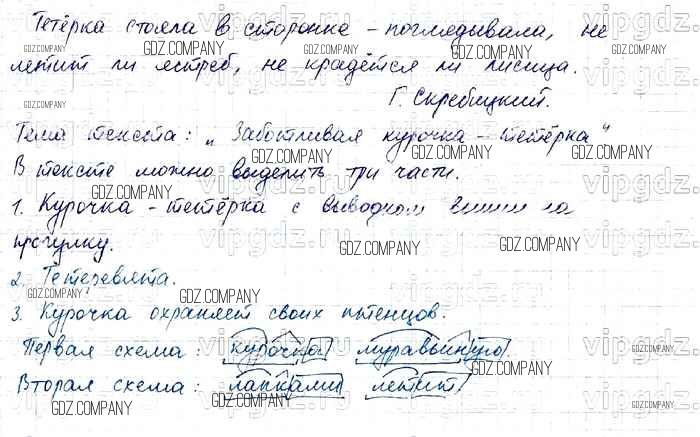 Тетёрка стояла в сторонке - поглядывала, не
летит ли ястреб, не крадётся ли лисица.
Г. Скребицкий.
Тема текста: „Заботливая курочка - тетёрка“
В тексте можно выделить три части.
1. Курочка - тетёрка с выводком вышли на
прогулку.
2. Тетеревята.
3. Курочка охраняет своих птенцов.
Первая схема: курочка муравьиную.
Вторая схема: лапками летит